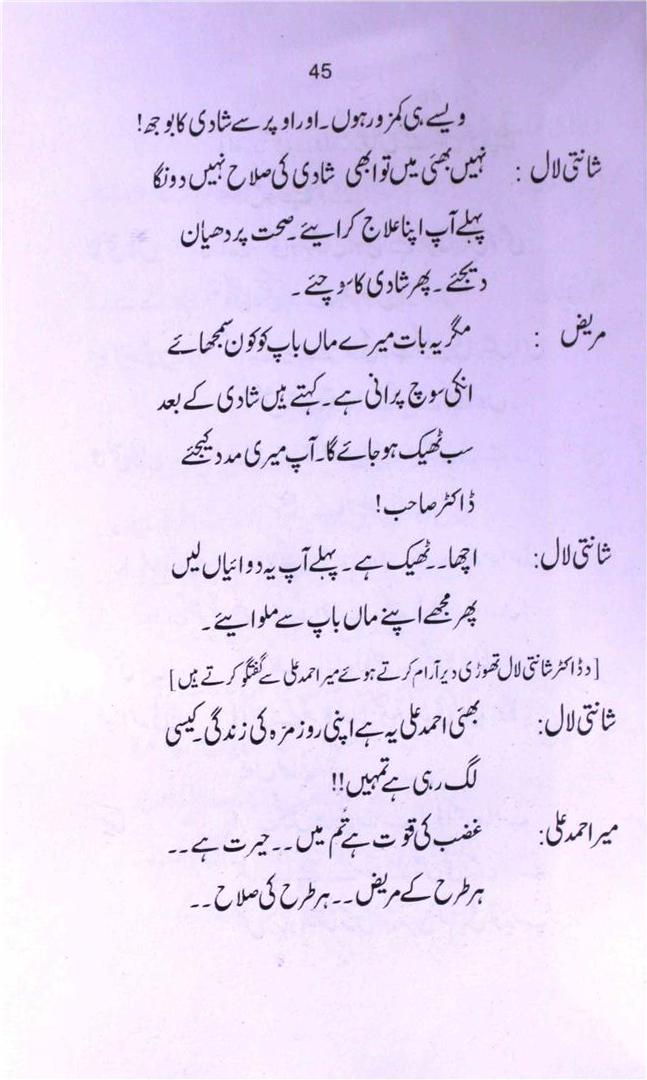 45
ویسے ہی کمزور ہوں۔ اور اوپر سے شادی کا بوجھ!
شانتی لال : نہیں بھئی میں تو ابھی شادی کی صلاح نہیں دونگا
پہلے آپ اپنا علاج کرایئے۔ صحت پر دھیان
دیجئے۔ پھر شادی کا سوچئے۔
مریض : مگر یہ بات میرے ماں باپ کو کون سمجھائے
انکی سوچ پرانی ہے۔ کہتے ہیں شادی کے بعد
سب ٹھیک ہو جائے گا۔ آپ میری مدد کیجئے
ڈاکٹر صاحب!
شانتی لال: اچھا۔۔ ٹھیک ہے۔ پہلے آپ یہ دوائیاں لیں
پھر مجھے اپنے ماں باپ سے ملوایئے۔
[ د ڈاکٹر شانتی لال تھوڑی دیر آرام کرتے ہوئے میر احمد علی سے گفتگو کرتے ہیں ]
شانتی لال: بھئی احمد علی یہ ہے اپنی روز مرّہ کی زندگی۔ کیسی
لگ رہی ہے تمہیں!!
میر احمد علی: غضب کی قوت ہے تُم میں۔۔ حیرت ہے۔۔
ہر طرح کے مریض۔۔ ہر طرح کی صلاح۔۔